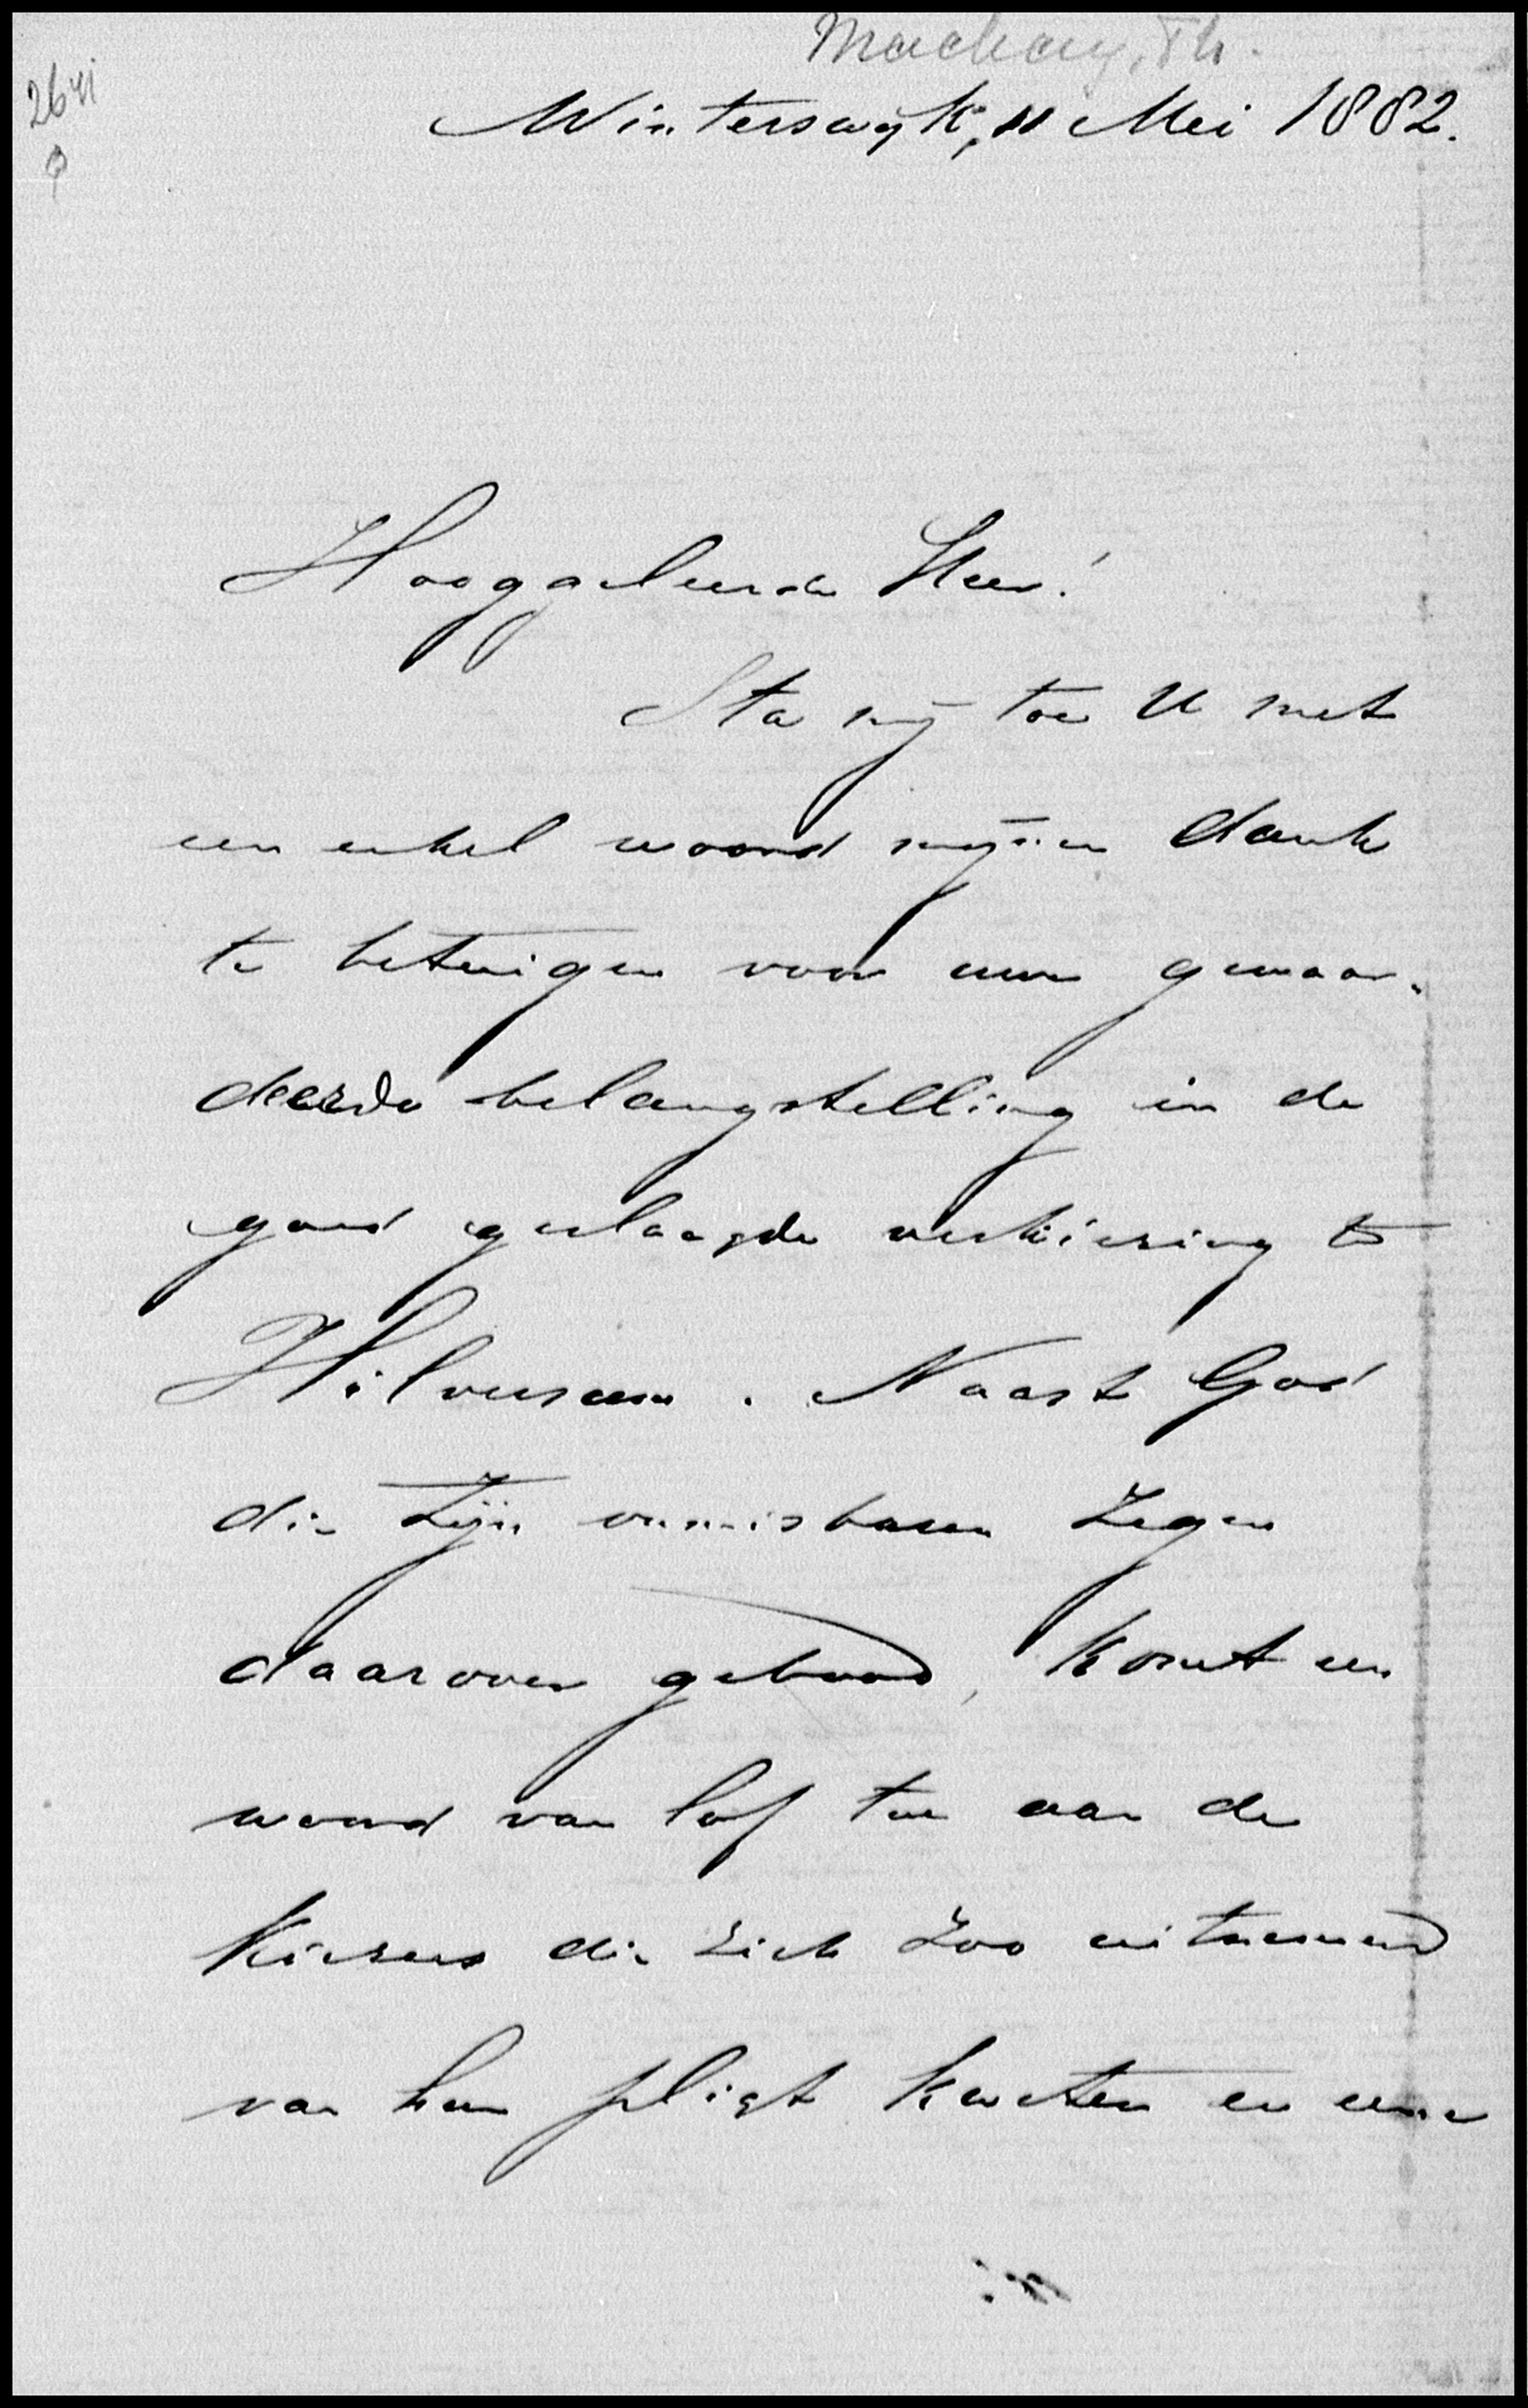 Mackay, Th.
2641
Winterswyk, 11 Mei 1882.
Hooggeleerde Heer!
Sta mij toe U met
een enkel woord mijnen dank
te betuigen voor uwe gewaar-
deerde belangstelling in de
goed geslaagde verkiezing te
Hilversum. Naast God
die Zijn onmisbaren Zegen
daarover gebood, komt een
woord van lof toe aan de
Kiezers die zich zoo uitnemend
van hun pligt kweten en eene